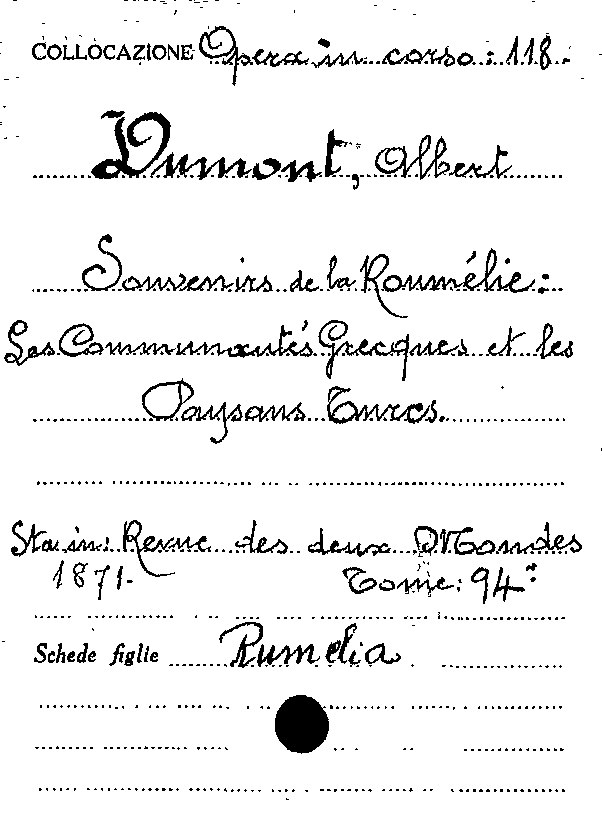 COLLOCAZIONE Opera in corso: 118.
Dumont, Albert
Souvenirs de la Roumélie:
Les Communautés Grecques et les
Paysans Turcs.
Sta in: Revue des deux Mondes
1871. Tome: 94º
Schede figlie Rumelia